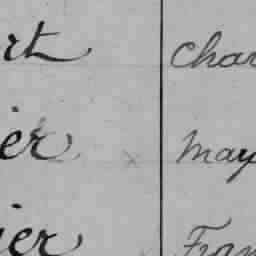 rt Char
ier May
ier Fran